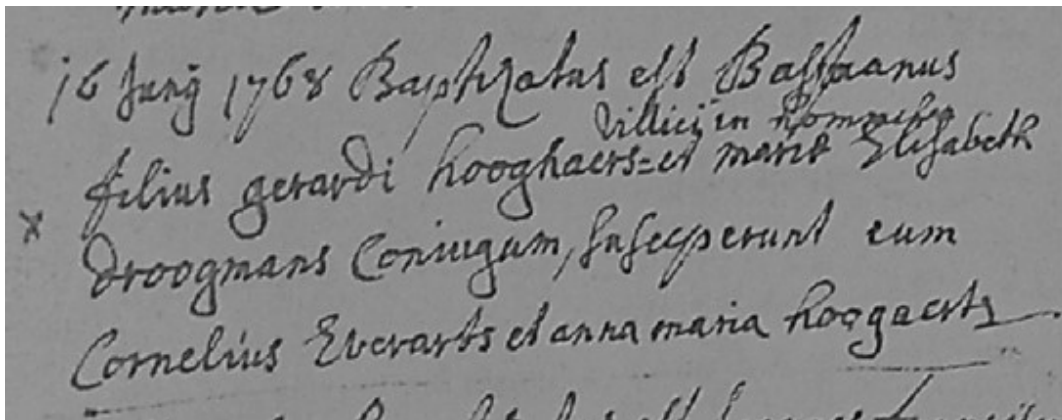 16 Junij 1768 Baptizatus est Bastianus
Villicij in hommelen
filius gerardi hooghaers = et mariæ Elisabeth
x
droogmans Coniugum, Susceperunt eum
Cornelius Everarts et anna maria hoogaerts